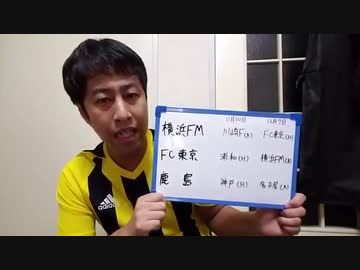 11月30日 12月7日
横浜FM 川崎F(A) FC東京(H)
FC東京 浦和(H) 横浜FM(A)
鹿島 神戸(H) 名古屋(A)
adidas